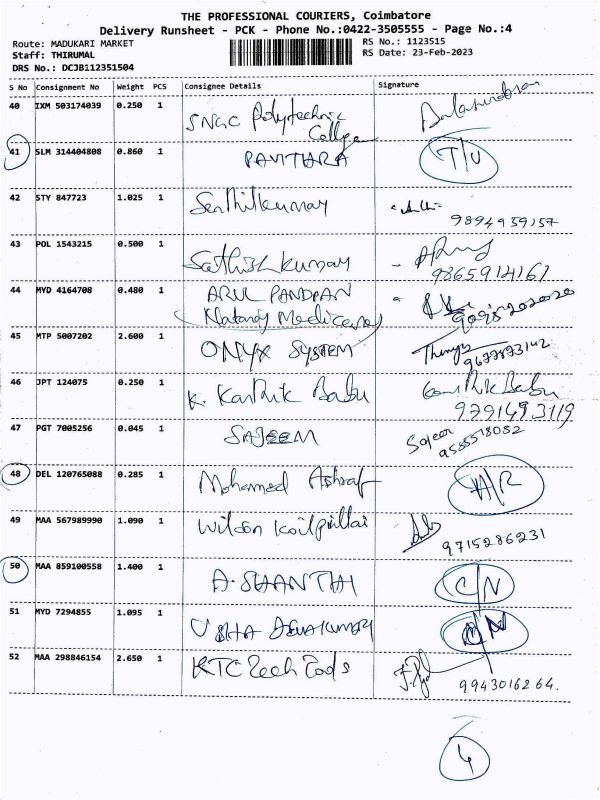 THE PROFESSIONAL COURIERS, Coimbatore
Delivery Runsheet - PCK - Phone No.:0422-3505555 - Page No.:4
Route: MADUKARI MARKET
RS No.: 1123515
Staff: THIRUMAL
RS Date: 23-Feb-2023
DRS No.: DCJB112351504
S No Consignment No Weight PCS Consignee Details Signature
40 IXM 503174039 0.250 1 SNGC Polytechnic
College
41 SLM 314404808 0.860 1 PAVITHRA T/U
42 STY 847723 1.025 1 Senthilkumar
9894959157
43 POL 1543215 0.500 1 Sathish kumar
9865914161
44 MYD 4164708 0.480 1 ARUL PANDIAN
45 MTP 5007202 2.600 1 ONYX SYSTEM
46 JPT 124075 0.250 1 K. Karthik Babu Karthik Babu
9791493119
47 PGT 7005256 0.045 1 SAJEEM Sajeer
9585518082
48 DEL 120765088 0.285 1 Mohamed Ashraf A/R
49 MAA 567989990 1.090 1 Wilson Koilpillai
9715286231
50 MAA 859100558 1.400 1 A. SHANTHI C/N
51 MYD 7294855 1.095 1 USHA DEVAKUMAR
52 MAA 298846154 2.650 1 KTC Tech Tools
9943016264.
4